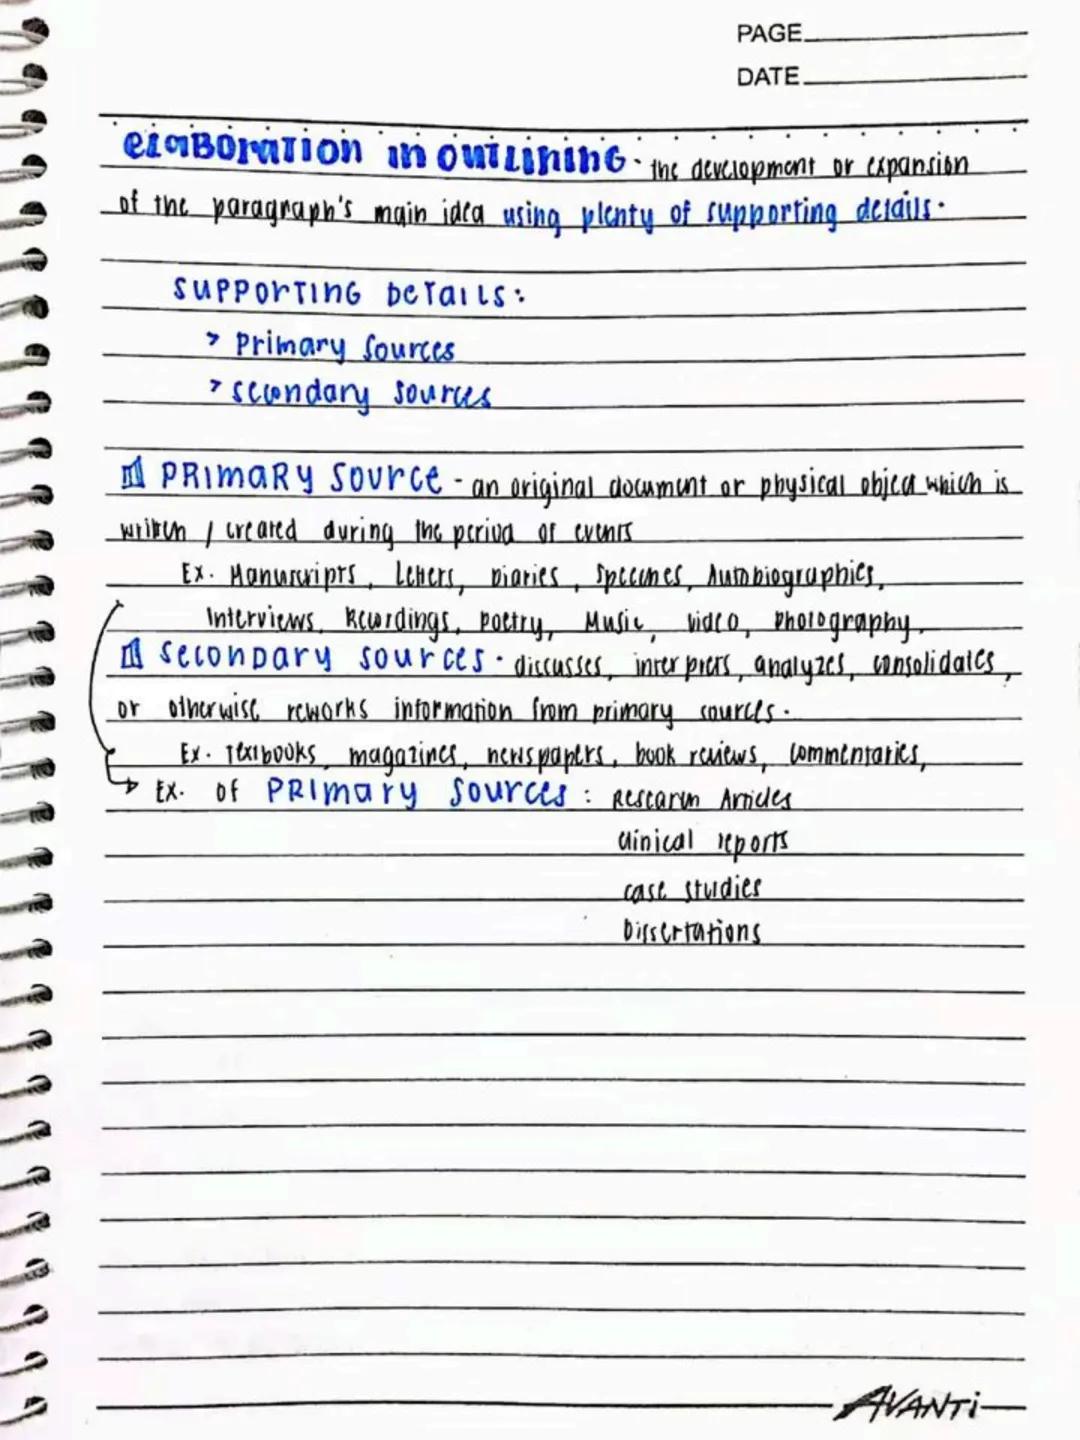 PAGE
DATE
ELABORATION IN OUTLINING - the development or expansion
of the paragraph's main idea using plenty of supporting details.
SUPPORTING DETAILS:
> Primary Sources
> Secondary Sources
PRIMARY SOURCE - an original document or physical object which is
written / created during the period of events
Ex. Manuscripts, Letters, Diaries, Speeches, Autobiographies,
Interviews, Recordings, Poetry, Music, video, Photography.
SECONDARY SOURCES - discusses, interprets, analyzes, consolidates,
or otherwise reworks information from primary sources.
Ex. Textbooks, magazines, newspapers, book reviews, commentaries,
Ex. OF PRIMARY SOURCES : Research Articles
Clinical reports
case studies
Dissertations
AVANTi